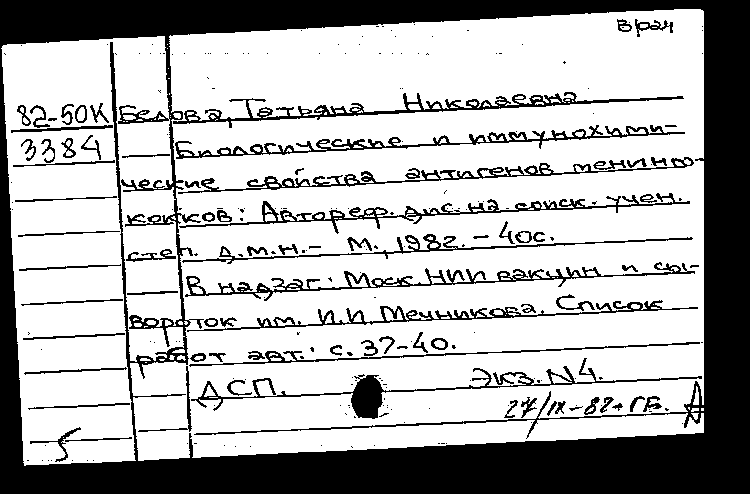 Врач
82-50К Белова, Татьяна Николаевна
3384 Биологические и иммунохими-
ческие свойства антигенов менинго-
кокков: Автореф. дис. на соиск. учен.
степ. д.м.н. - М., 1982. - 40с.
В надзаг.: Моск. НИИ вакцин и сы-
вороток им. И.И. Мечникова. Список
работ авт.: с. 37-40.
ДСП. Экз. N4.
27/IX-82г
5